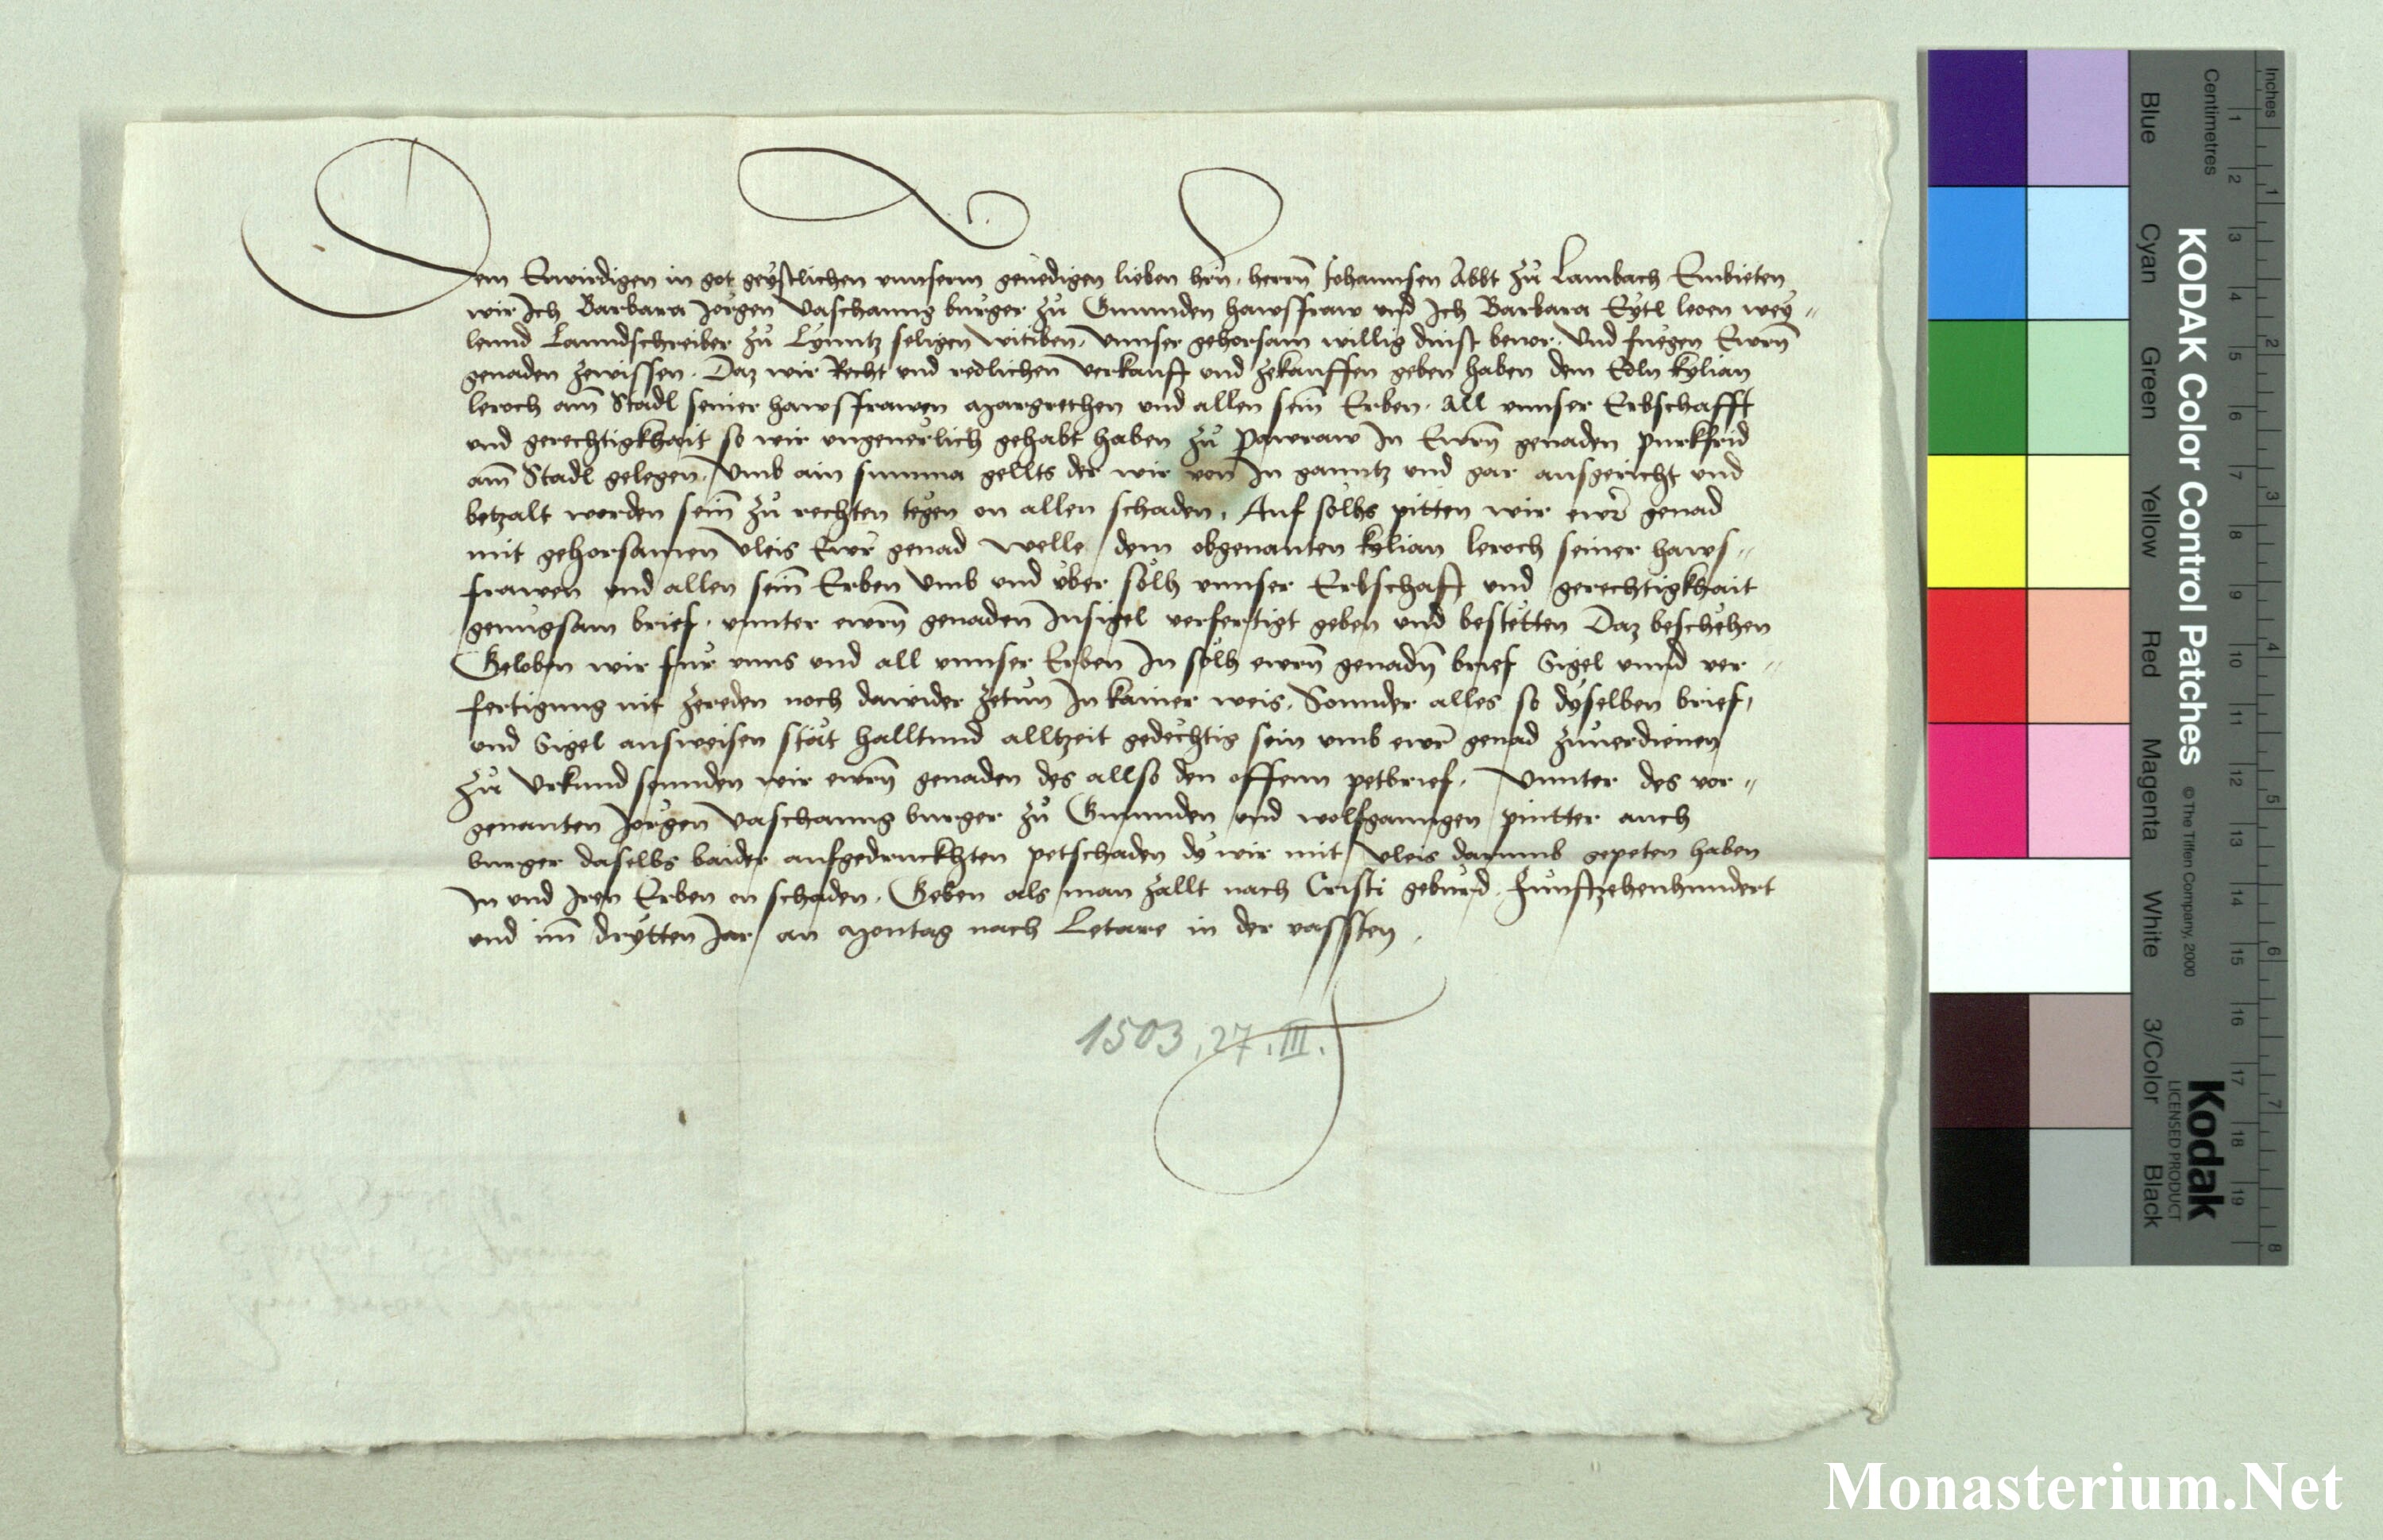 Dem Erwirdigen in got geystlichen vnnserm genedigen lieben hrn̄. herrn̄ Johannsen Abbt zů Lambach Embieten
wir Ich Barbara Jorgen Vaschanng burger zů Gmunden hawsfraw vnd Ich Barbara Eytl leoen wey„
lennd Lanndschreiber zů Lynntz seligen witiben. Vnnser gehorsam willig dinst beuor. Vnd fuegen Ewrn̄
genaden zewissen. Daz wir Recht vnd redlichen verkaufft vnd zekauffen geben haben dem Edln kylian
leroch am̄ Stadl seiner hawsfrawen Margrethen vnd allen sein̄ Erben. All vnnser Erbschafft
vnd gerechtigkhait so wir vngeuerlich gehabt haben zů pawraw In Ewrn̄ genaden purkfrid
am̄ Stadl gelegen. Vmb ain summa gellts der wir von In ganntz vnd gar ausgericht vnd
betzalt worden sein̄ zů rechten tegen on allen schaden. Auf solhs pitten wir ewr̄ genad
mit gehorsamen Vleis Ewr̄ genad welle dem obgenanten kylian leroch seiner haws„
frawen vnd allen sein̄ Erben Vmb vnd vber sölh vnnser Erbschafft vnd gerechtigkhait
genugsam brief. vnnter ewrn̄ genaden Insigel verfertigt geben vnd bestetten Daz beschehen
Geloben wir fur vnns vnd all vnnser Erben In sölh ewrn̄ genadn̄ brief Sigel vnnd ver„
fertigung nit zereden noch dawider zetun In kainer weis. Sonnder alles so dyselben brief
vnd Sigel ausweisen stät halltund alltzeit gedechtig sein vmb ewr̄ genad zuuerdienen
Zů Vrkund sennden wir ewrn̄ genaden des allso den offenn petbrief. Vnnter des vor„
genanten Jorgen Vaschanng burger zů Gmunden vnd wolfganngen pintter auch
burger daselbs baider aufgedruckhten petschaden dy wir mit Vleis darumb gepeten haben
In vnd Iren Erben on schaden. Geben als man zallt nach Cristi geburd. Funfftzehenhundert
vnd im̄ drytten Jar an Montag nach Letare in der vassten.
1503. 27. III.
KODAK Color Control Patches
© The Tiffen Company, 2000
Kodak
LICENSED PRODUCT
Inches 1 2 3 4 5 6 7 8
Centimetres 1 2 3 4 5 6 7 8 9 10 11 12 13 14 15 16 17 18 19
Blue Cyan Green Yellow Red Magenta White 3/Color Black
Monasterium.Net